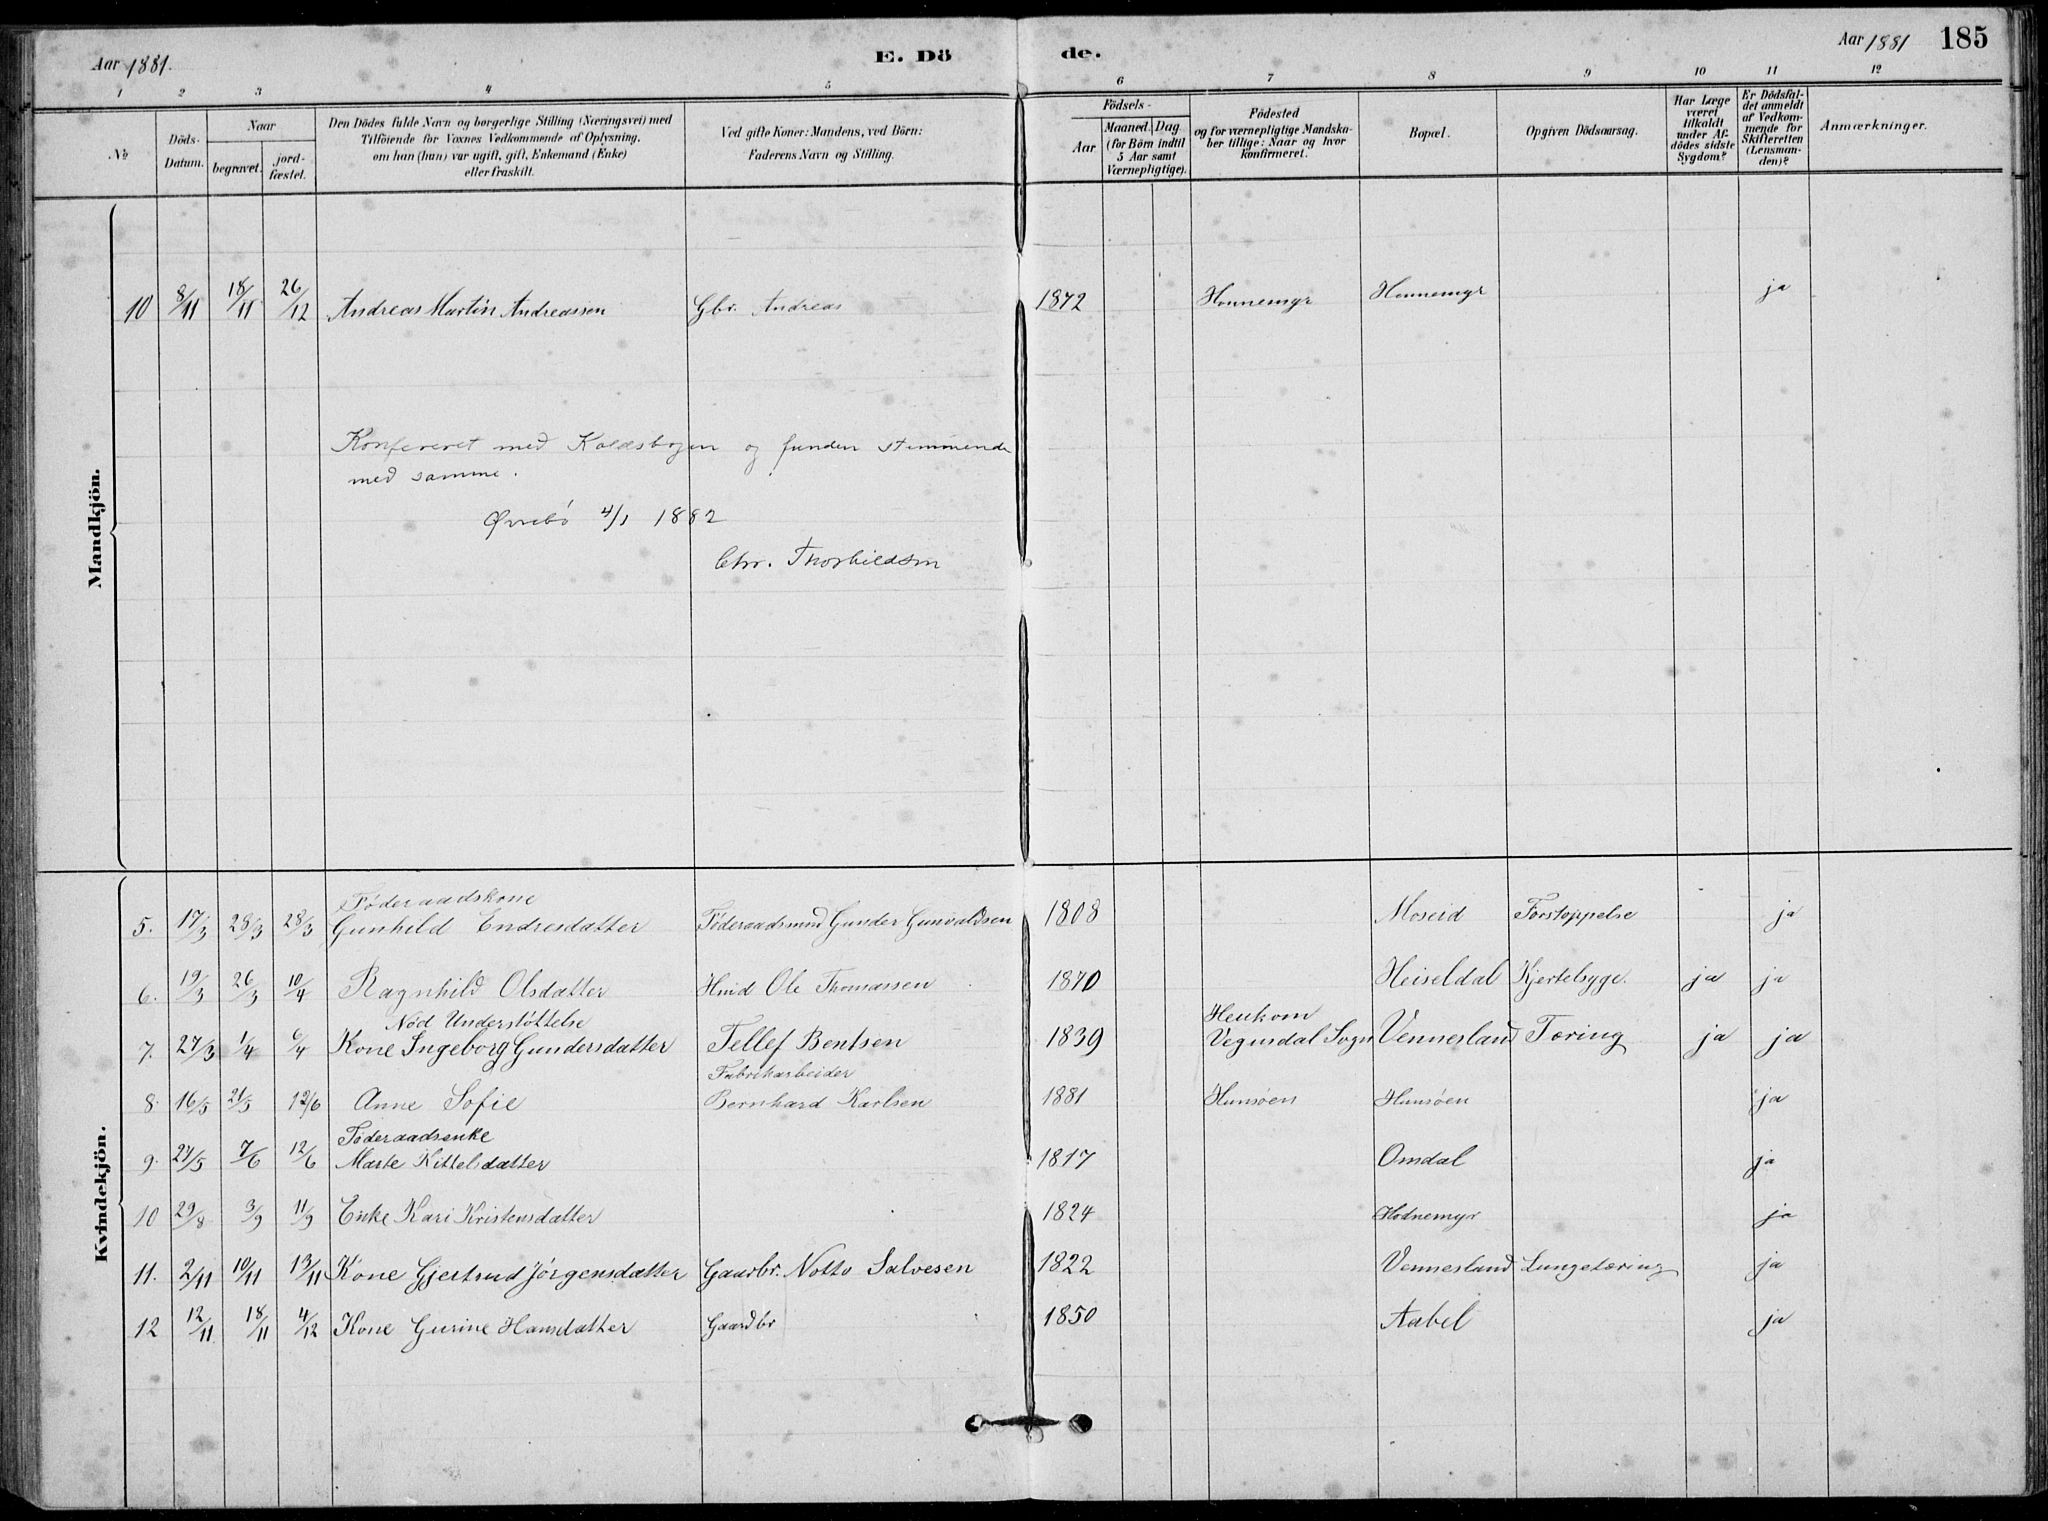 Aar 1881.
E. Dö
de.
Aar 1881
185
1 2 3 4 5 6 7 8 9 10 11 12
No
Döds-
Datum.
Naar
begravet.
jord-
fæstet.
Den Dödes fulde Navn og borgerlige Stilling (Næringsvei) med
Tilföiende for Voxnes Vedkommende af Oplysning,
om han (hun) var ugift, gift, Enkemand (Enke)
eller fraskilt.
Ved gifte Koner: Mandens, ved Börn:
Faderens Navn og Stilling.
Födsels-
Aar
Maaned. Dag
(for Börn indtil
5 Aar samt
Værnepligtige).
Födested
og for værnepligtige Mandska-
ber tillige: Naar og hvor
konfirmeret.
Bopæl.
Opgiven Dödsaarsag.
Har Læge
været
tilkaldt
under Af-
dödes sidste
Sygdom?
Er Dödsfal-
det anmeldt
af Vedkom-
mende for
Skifteretten
(Lensman-
den)?
Anmærkninger.
Mandkjön.
10 8/11 18/11 26/12 Andreas Martin Andreassen Gbr. Andreas 1872 Honnemyr Honnemyr ja
Konfereret med Kaldsbogen og funden stemmende
med samme.
Øvrebö 4/1 1882
Chr. Thorkildsen
Kvindekjön.
Föderaadskone
5. 17/3 28/3 28/3 Gunhild Endresdatter Föderaadsmand Gunder Gunvaldsen 1808 Moseid Forstoppelse ja
6. 19/3 26/3 10/4 Ragnhild Olsdatter Huid Ole Thomassen 1870 Heiseldal Kjertelsyge. ja ja
Nød Understøttelse
Heukom
7. 27/3 1/4 6/4 Kone Ingeborg Gundersdatter Tellef Bentsen 1839 Vegusdal Sogn Vennesland Tæring ja ja
Fabrikarbeider
8. 16/5 21/5 12/6 Anne Sofie Bernhard Karlsen 1881 Hunsøen Hunsøen ja
Föderaadsenke
9. 27/5 7/6 12/6 Marte Kittelsdatter 1817 Omdal ja
10 29/8 3/9 11/9 Enke Kari Kristensdatter 1824 Hodnemyr ja
11. 2/11 10/11 13/11 Kone Gjertrud Jörgensdatter Gaardbr. Notto Salvesen 1822 Vennesland Lungetæring ja
12 12/11 18/11 4/12 Kone Gurine Hansdatter Gaardbr 1850 Aabel ja